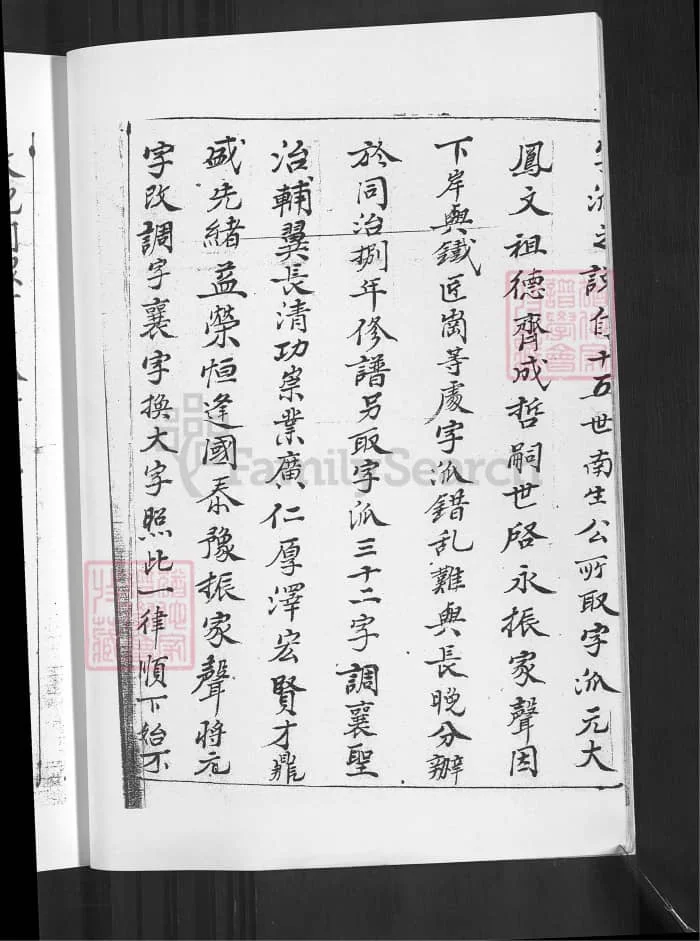 字派之說自十五世南生公所取字派元大
鳳文祖德齊成哲嗣世啓永振家聲因
下岸與鐵匠崗等處字派錯乱難與長晚分辦
於同治捌年修譜另取字派三十二字調襄聖
治輔翼長清功崇業廣仁厚澤宏賢才鼎
盛先緒益榮恒逢國泰豫振家聲將元
字改調字襄字換大字照此一律順下始不
FamilySearch